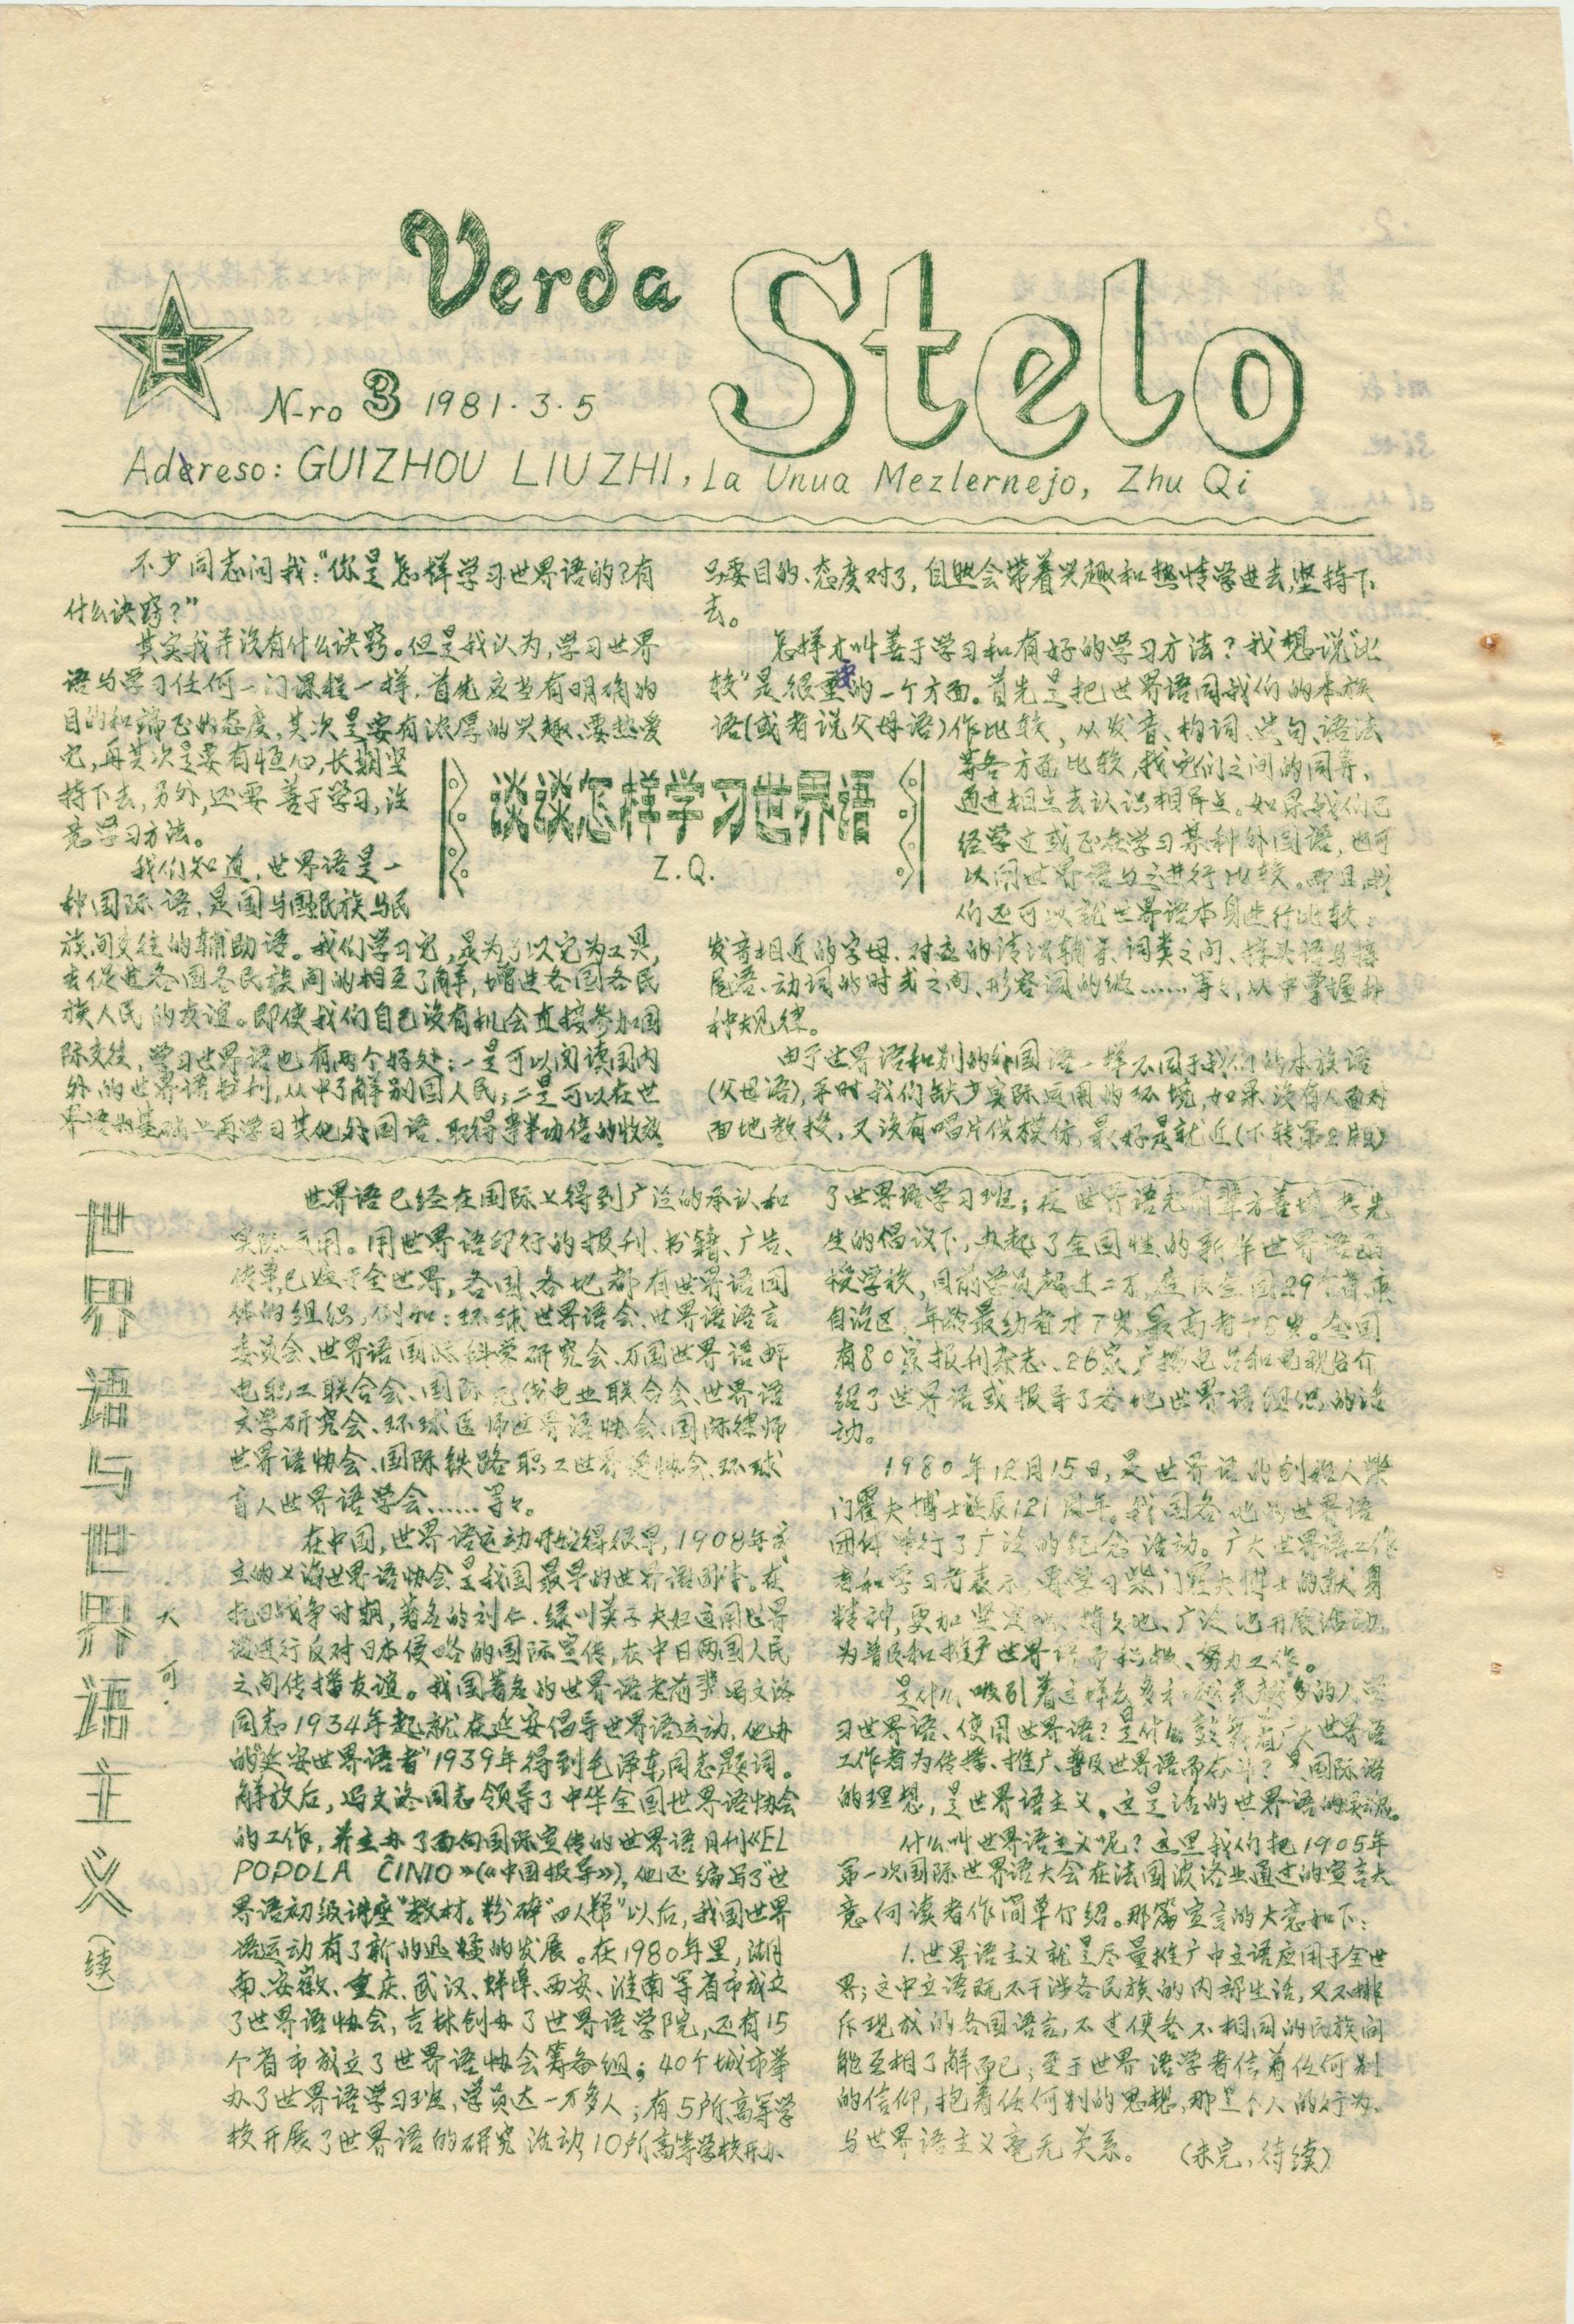 Verda Stelo
E
N-ro 3 1981·3·5
Adereso: GUIZHOU LIUZHI, La Unua Mezlernejo, Zhu Qi
谈谈怎样学习世界语
Z.Q.
不少同志问我:“你是怎样学习世界语的?有
什么诀窍?”
其实我并没有什么诀窍。但是我认为,学习世界
语与学习任何一门课程一样,首先应当有明确的
目的和端正的态度,其次是要有浓厚的兴趣、要热爱
它,再其次是要有恒心,长期坚
持下去,另外,还要善于学习,注
意学习方法。
我们知道,世界语是一
种国际语,是国与国民族与民
族间交往的辅助语。我们学习它,是为了以它为工具,
去促进各国各民族间的相互了解,增进各国各民
族人民的友谊。即使我们自己没有机会直接参加国
际交往,学习世界语也有两个好处:一是可以阅读国内
外的世界语书刊,从中了解别国人民;二是可以在世
界语的基础上再学习其他外国语,取得事半功倍的收效
只要目的、态度对了,自然会带着兴趣和热情学进去,坚持下
去。
怎样才叫善于学习和有好的学习方法?我想说“比
较”是很重要的一个方面。首先是把世界语同我们的本族
语(或者说父母语)作比较,从发音、构词、造句、语法
等各方面比较,找它们之间的同异,
通过相点去认识相异点。如果我们已
经学过或正在学习某种外国语,也可
以用世界语与之进行比较。而且我
们还可以就世界语本身进行比较:
发音相近的字母、对应的清浊辅音、词类之间、接头语与接
尾语、动词的时式之间、形容词的级……等等,从中掌握
种规律。
由于世界语和别的外国语一样不同于我们的本族语
(父母语),平时我们缺少实际运用的环境,如果没有人面对
面地教授,又没有唱片供模仿,最好是就近(下转第2版)
世界语与世界语主义(续)
·大可·
世界语已经在国际上得到广泛的承认和
实际运用。用世界语印行的报刊、书籍、广告、
传单已遍于全世界,各国、各地都有世界语团
体的组织,例如:环球世界语会、世界语语言
委员会、世界语国际科学研究会、万国世界语邮
电职工联合会、国际电业联合会、世界语
文学研究会、环球医师世界语协会、国际律师
世界语协会、国际铁路职工世界语协会、环球
盲人世界语学会……等等。
在中国,世界语运动开始得很早,1908年成
立的上海世界语协会是我国最早的世界语团体。在
抗日战争时期,著名的刘仁、绿川英子夫妇运用世界
语进行反对日本侵略的国际宣传,在中日两国人民
之间传播友谊。我国著名的世界语老前辈冯文洛
同志1934年起就在延安倡导世界语运动,他办
的“延安世界语者”1939年得到毛泽东同志题词。
解放后,冯文洛同志领导了中华全国世界语协会
的工作,并主办了面向国际宣传的世界语月刊《EL
POPOLA ĈINIO》(《中国报导》),他还编写了“世
界语初级讲座”教材。粉碎“四人帮”以后,我国世界
语运动有了新的迅猛的发展。在1980年里,湖
南、安徽、重庆、武汉、蚌埠、西安、淮南等省市成立
了世界语协会,吉林创办了世界语学院,还有15
个省市成立了世界语协会筹备组;40个城市举
办了世界语学习班,学员达一万多人;有5所高等学
校开展了世界语的研究活动,10所高等学校开办
了世界语学习班;在世界语老前辈方善境先
生的倡议下,办起了全国性的新作世界语函
授学校,目前学员超过二万,遍及全国29个省市
自治区,年龄最幼者才7岁,最高者76岁。全国
有80家报刊杂志、26家广播电台和电视台介
绍了世界语或报导了各地世界语组织的活
动。
1980年12月15日,是世界语的创始人柴
门霍夫博士诞辰121周年。我国各地的世界语
团体举行了广泛的纪念活动。广大世界语工作
者和学习者表示,要学习柴门霍夫博士的献身
精神,更加坚定地、持久地、广泛地开展活动,
为普及和推广世界语而积极、努力工作。
是什么吸引着这样众多和越来越多的人学
习世界语、使用世界语?是什么鼓舞着广大世界语
工作者为传播、推广、普及世界语而奋斗?是国际语
的理想,是世界语主义。这是活的世界语的灵魂。
什么叫世界语主义呢?这里我们把1905年
第一次国际世界语大会在法国波洛业通过的宣言大
意向读者作简单介绍。那篇宣言的大意如下:
1.世界语主义就是尽量推广中立语应用于全世
界;这中立语既不干涉各民族的内部生活,又不排
斥现成的各国语言,不过使各不相同的民族间
能互相了解而已;至于世界语学者信着任何别
的信仰,抱着任何别的思想,那是个人的行为,
与世界语主义毫无关系。 (未完,待续)